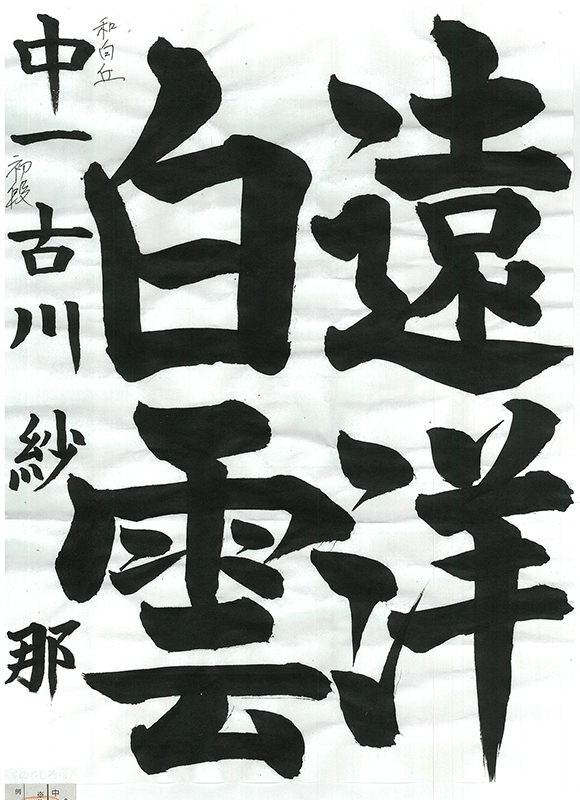 遠洋
白雲
中一 古川 紗那
和白丘
初段